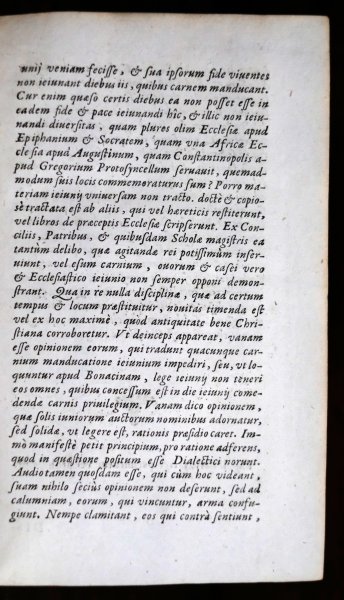 unij veniam fecisse, & sua ipsorum fide viuentes
non ieiunant diebus iis, quibus carnem manducant.
Cur enim quæso certis diebus ea non posset esse in
eadem fide & pace ieiunandi hîc, & illic non ieiu-
nandi diuersitas, quam plures olim Ecclesiæ apud
Epiphanium & Socratem, quam vna Africæ Ec-
clesia apud Augustinum, quam Constantinopolis a-
pud Gregorium Protosyncellum seruauit, quemad-
modum suis locis commemoraturus sum? Porro ma-
teriam ieiunij vniuersam non tracto. doctè & copio-
sè tractata est ab aliis, qui vel hæreticis restiterunt,
vel libros de præceptis Ecclesiæ scripserunt. Ex Con-
ciliis, Patribus, & quibusdam Scholæ magistris ea
tantùm delibo, quæ agitandæ rei potissimùm inser-
uiunt, vel esum carnium, ouorum & casei vero
& Ecclesiastico ieiunio non semper opponi demon-
strant. Qua in re nulla disciplinæ, quæ ad certum
tempus & locum præstituitur, nouitas timenda est
vel ex hoc maximè, quòd antiquitate bene Chri-
stiana corroboretur. Vt deinceps appareat, vanam
esse opinionem eorum, qui tradunt quacunque car-
nium manducatione ieiunium impediri, seu, vt lo-
quuntur apud Bonacinam, lege ieiunij non teneri
eos omnes, quibus concessum est in die ieiunij come-
dendæ carnis priuilegium. Vanam dico opinionem,
quæ solis iuniorum auctorum nominibus adornatur,
sed solidæ, vt legere est, rationis præsidio caret. Im-
mò manifestè petit principium, pro ratione adferens,
quod in quæstione positum esse Dialectici norunt.
Audio tamen quosdam esse, qui cùm hoc videant,
suam nihilo seciùs opinionem non deserunt, sed ad
calumniam, eorum, qui vincuntur, arma confu-
giunt. Nempe clamitant, eos qui contrà sentiunt,